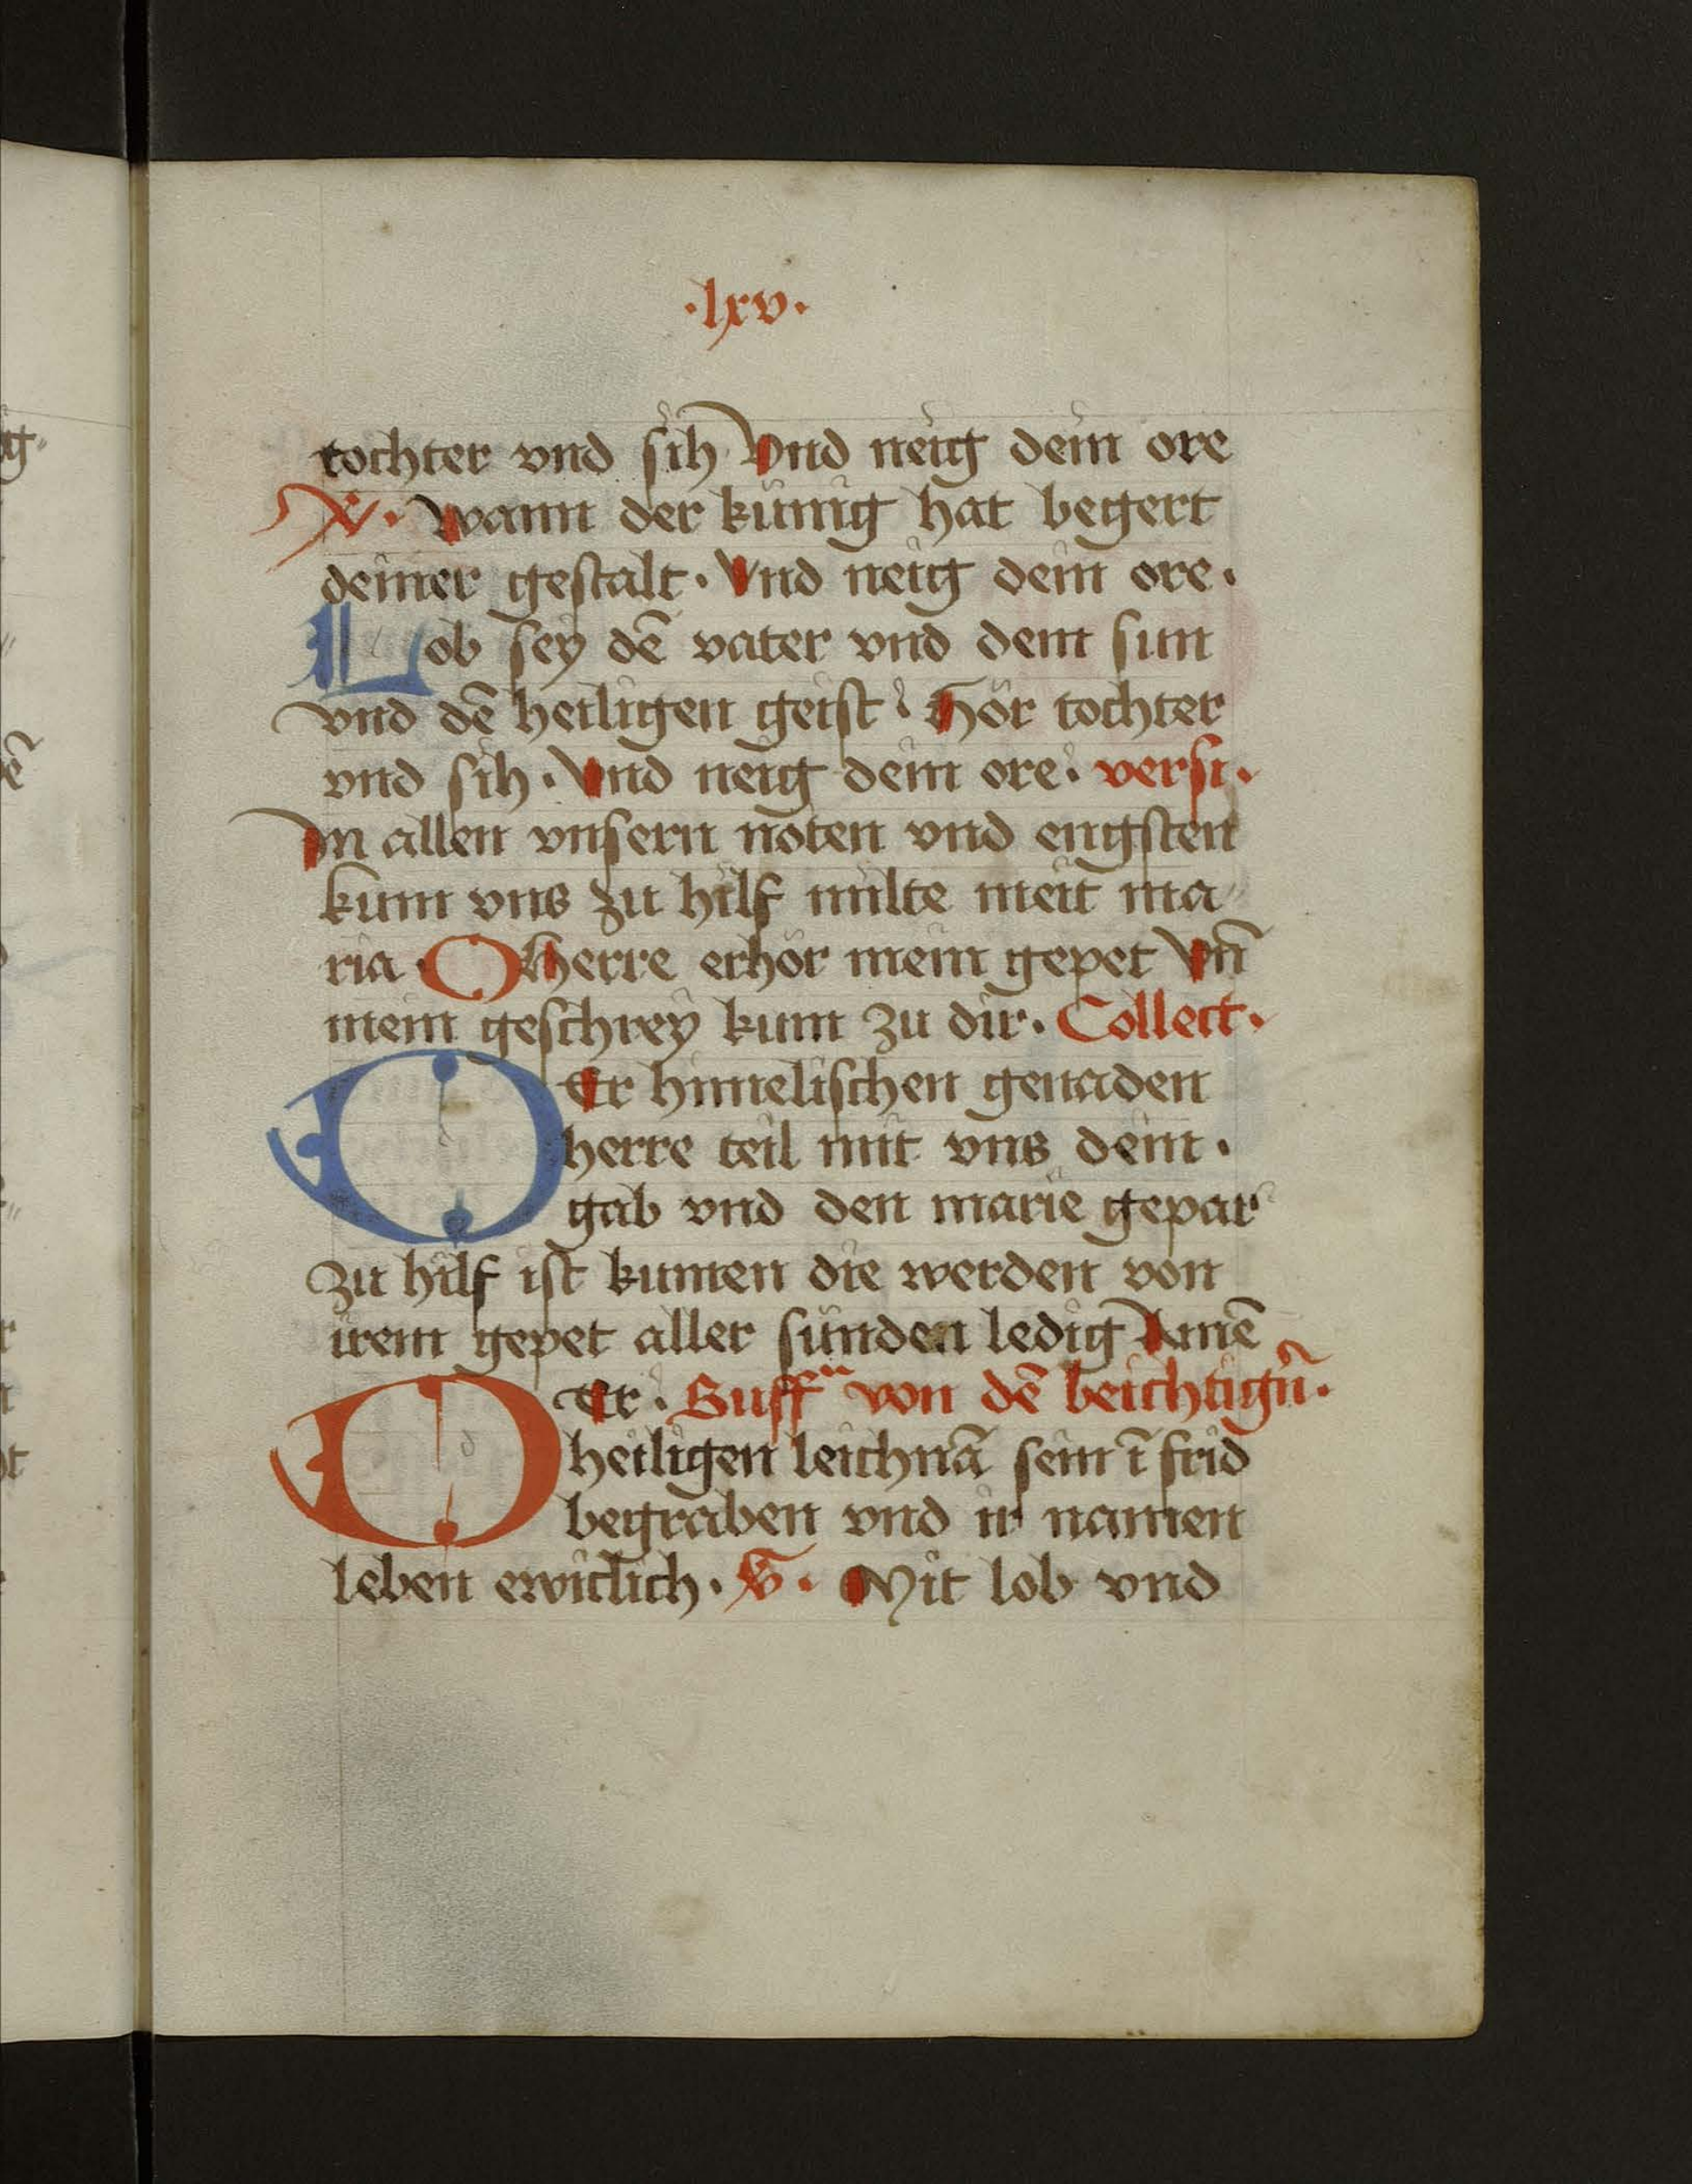 ·lxv·
tochter vnd sih Vnd neig dein ore
V· wann der künig hat begert
deiner gestalt· Vnd neig dein ore·
Lob sey dē vater vnd dem sun
vnd dē heiligen geist· Hör tochter
vnd sih· Vnd neig dein ore· versi·
In allen vnsern nöten vnd engsten
kum vns zu hilf milte meit ma
ria· O herre erhör mein gepet Vn̄
mein geschrey kum zu dir· Collect·
Der himelischen genaden
herre teil mit vns dein·
gab vnd den marie gepar
zu hilf ist kumen die werden von
irem gepet aller sünden ledig Amē
Der· Suff von dē beichtigrn̄·
heiligen leichnā sein ī frid
begraben vnd ir namen
leben ewiclich· V· Mit lob vnd